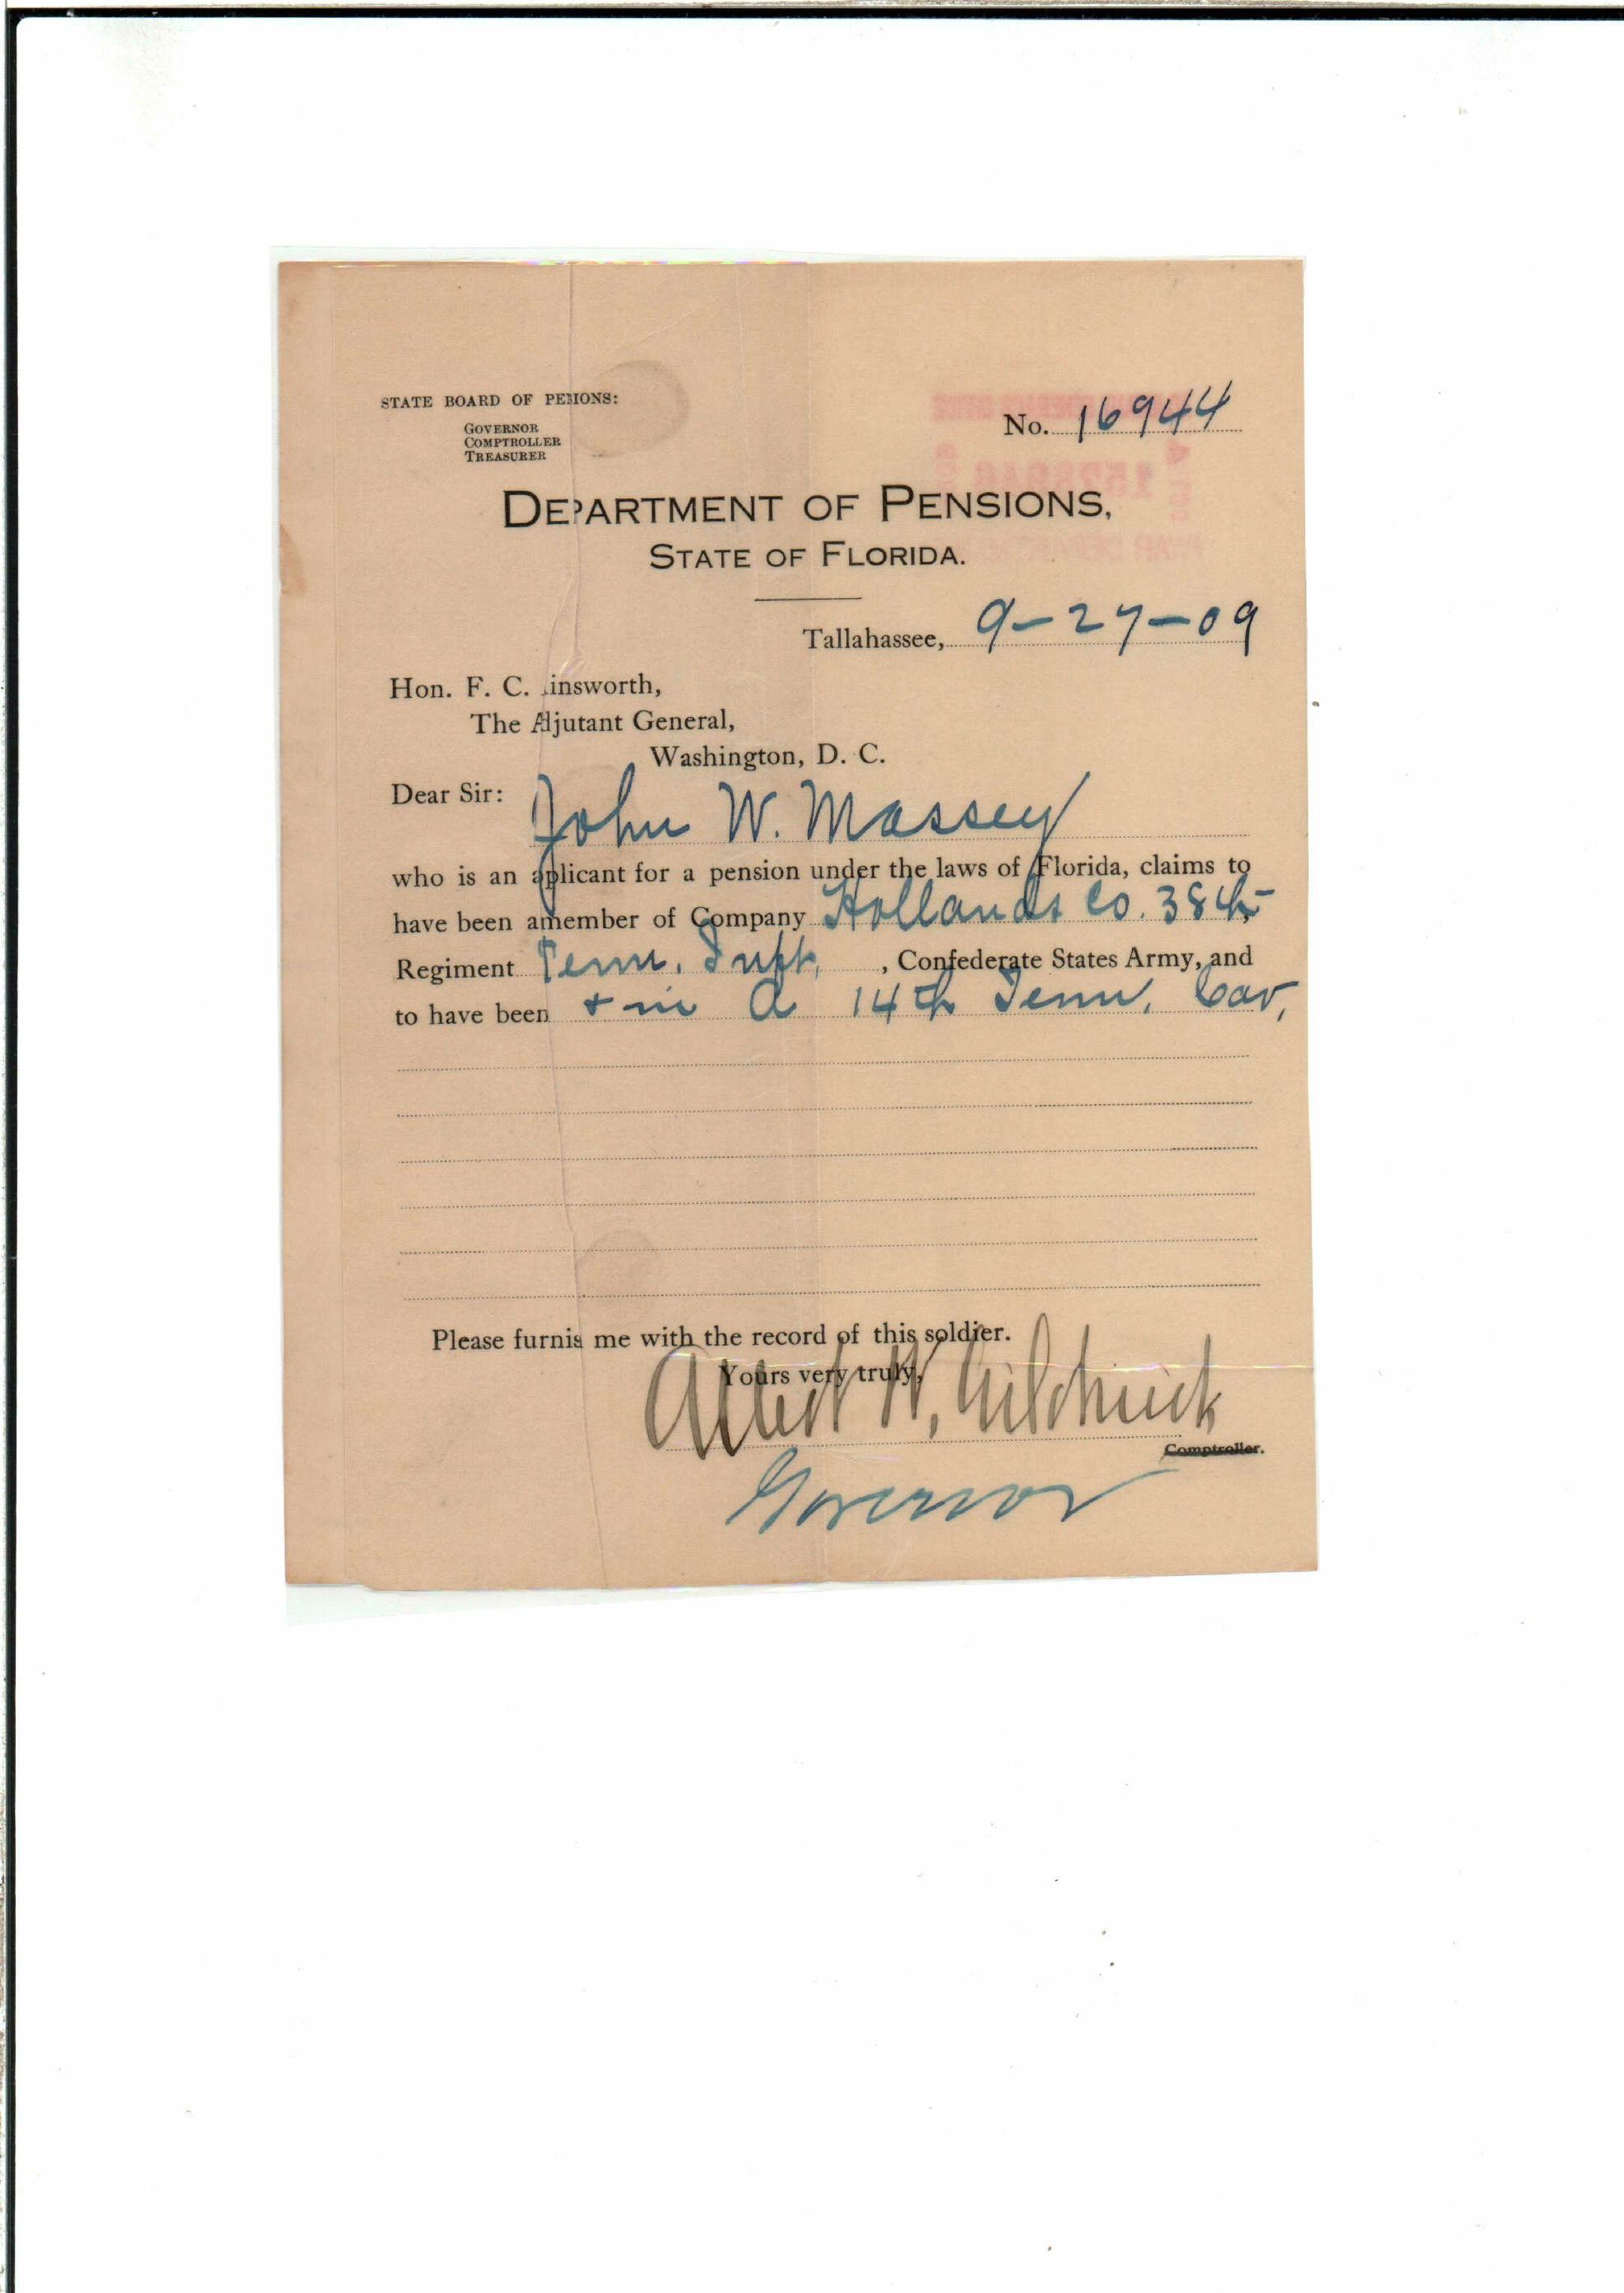 STATE BOARD OF PENIONS:
GOVERNOR
COMPTROLLER
TREASURER
No. 16944
DEPARTMENT OF PENSIONS,
STATE OF FLORIDA.
Tallahassee, 9-27-09
Hon. F. C. insworth,
The Adjutant General,
Washington, D. C.
Dear Sir:
John W. Massey
who is an applicant for a pension under the laws of Florida, claims to
have been a member of Company Hollands Co. 38th
Regiment Tenn. Inft, , Confederate States Army, and
to have been + in A 14th Tenn. Cav,
Please furnis me with the record of this soldier.
Yours very truly,
Albert W. Gilchrist
Comptroller.
Governor